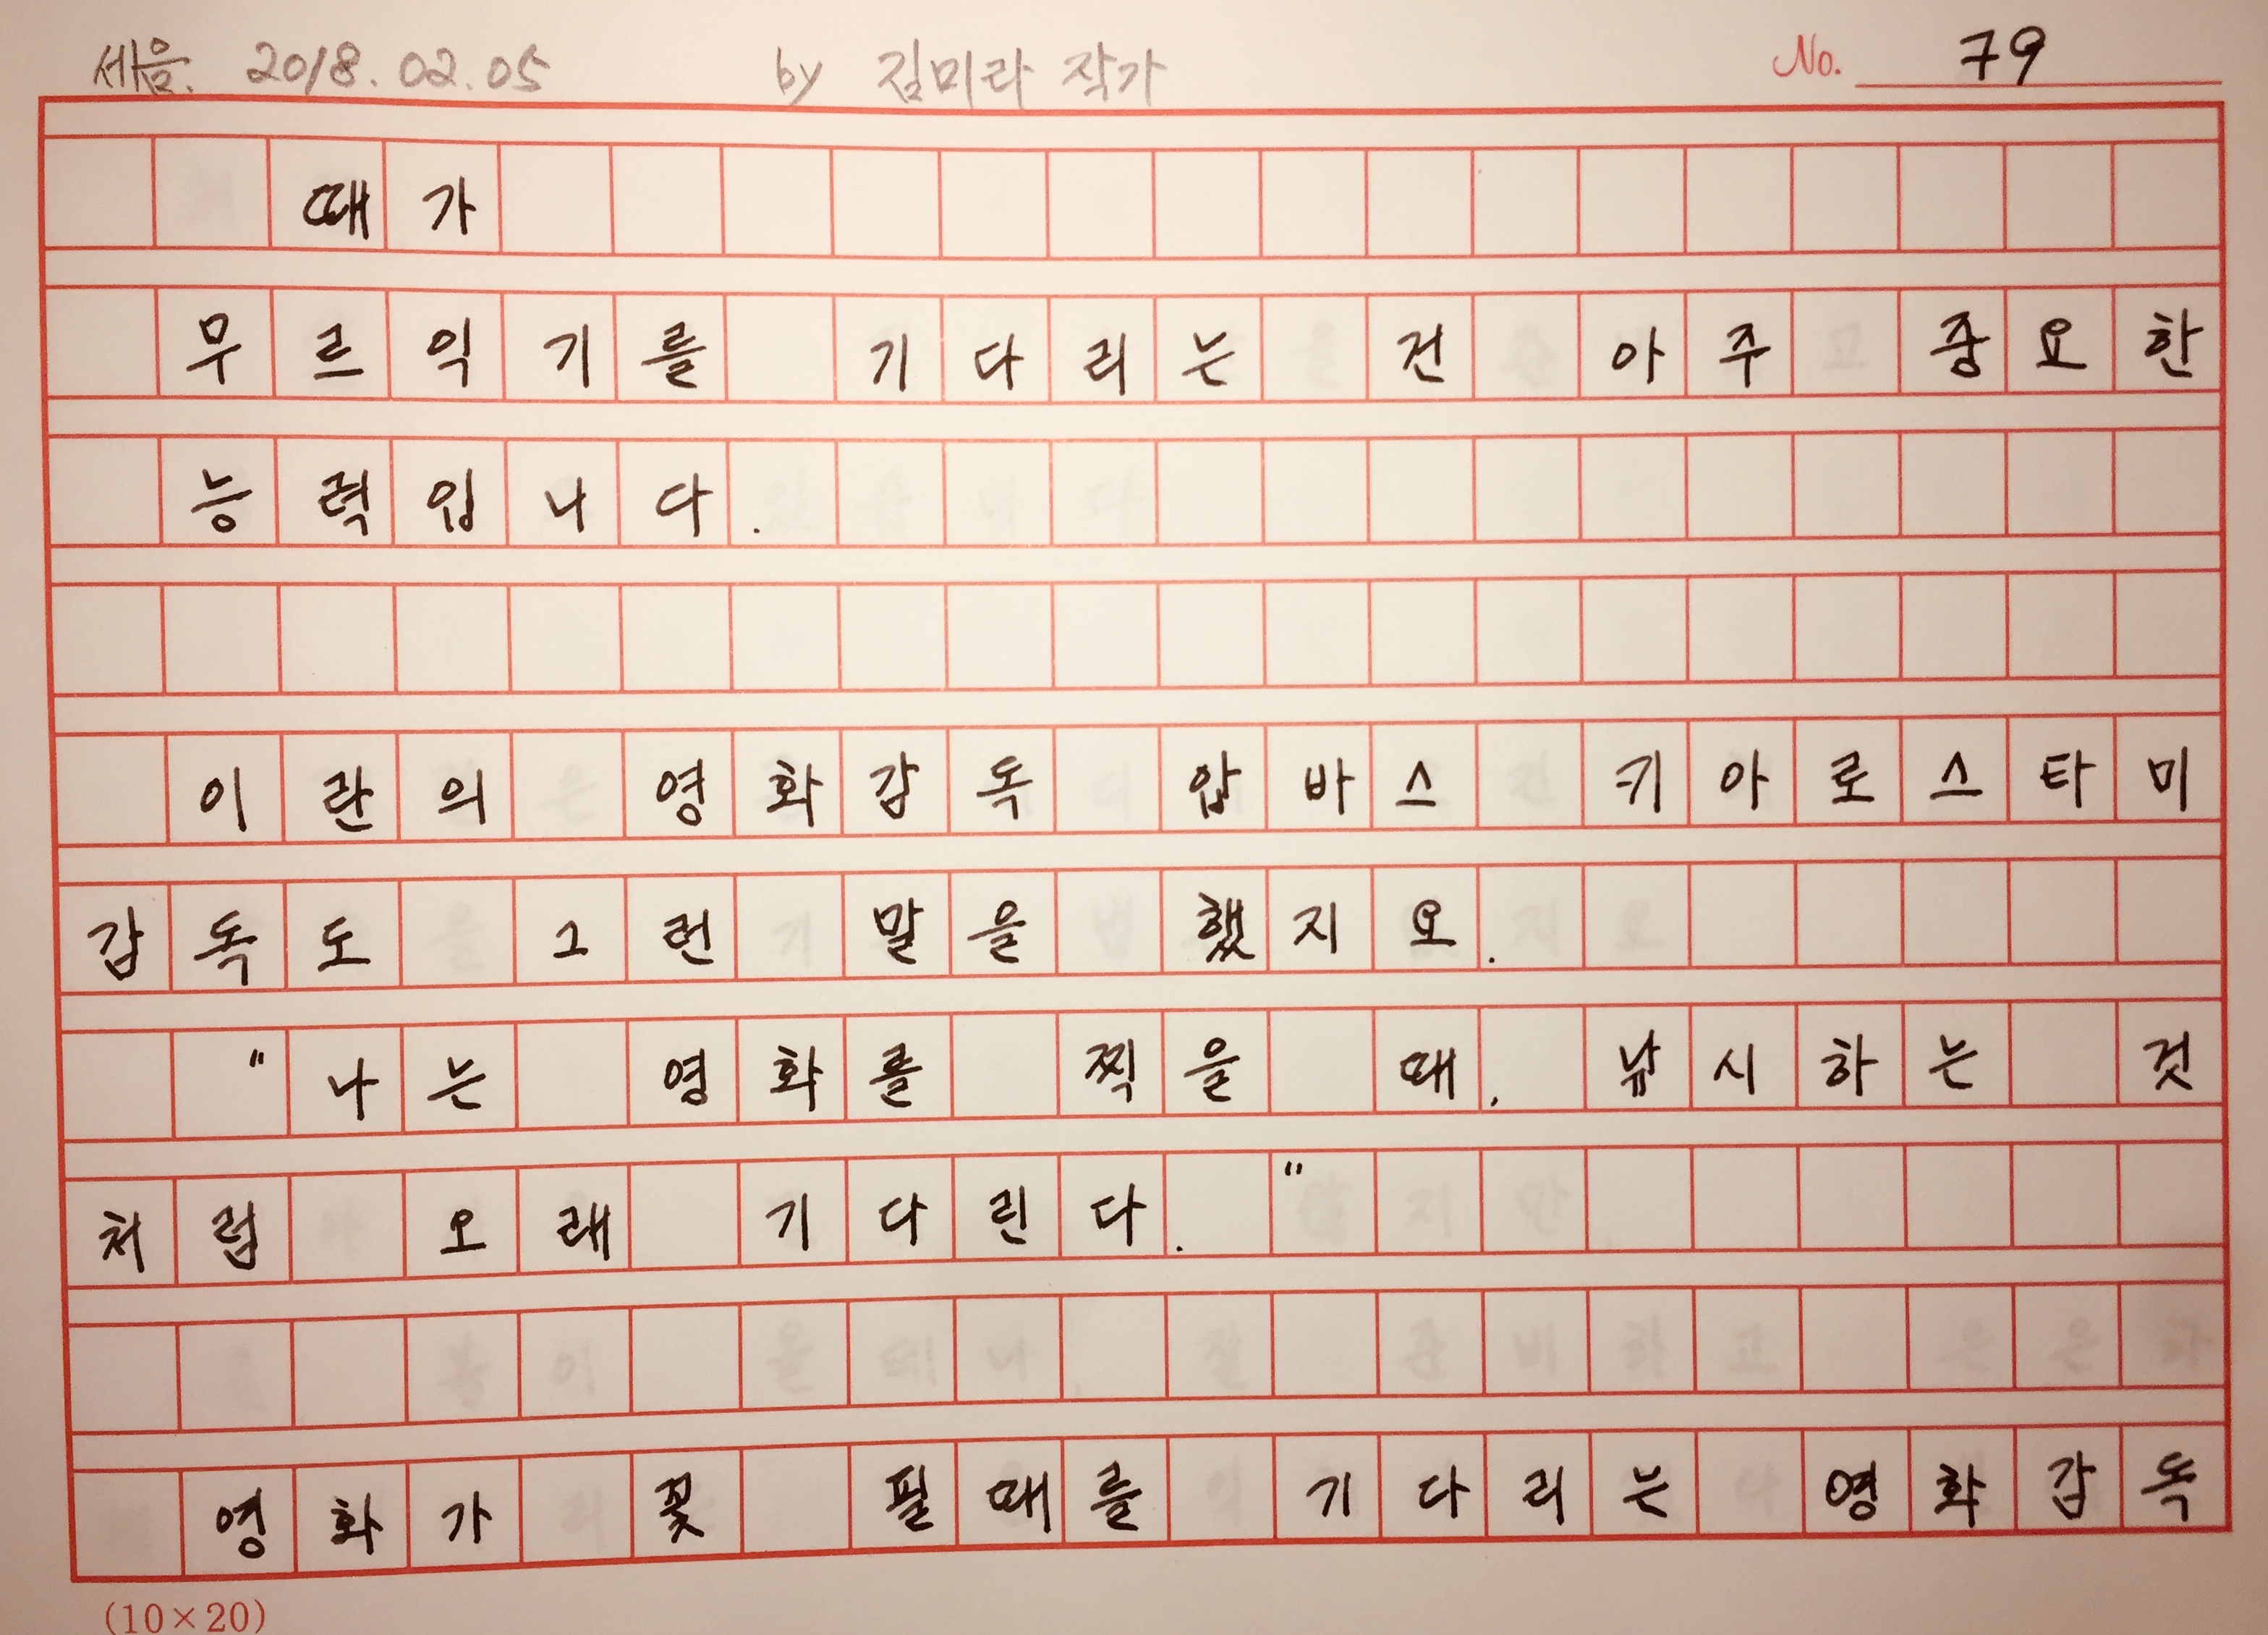 세음. 2018.02.05 by 김미라 작가 No. 79
때가
무르익기를 기다리는 건 아주 중요한
능력입니다.
이란의 영화감독 압바스 키아로스타미
감독도 그런 말을 했지요.
"나는 영화를 찍을 때, 낚시하는 것
처럼 오래 기다린다."
영화가 꽃 필때를 기다리는 영화감독
(10×20)